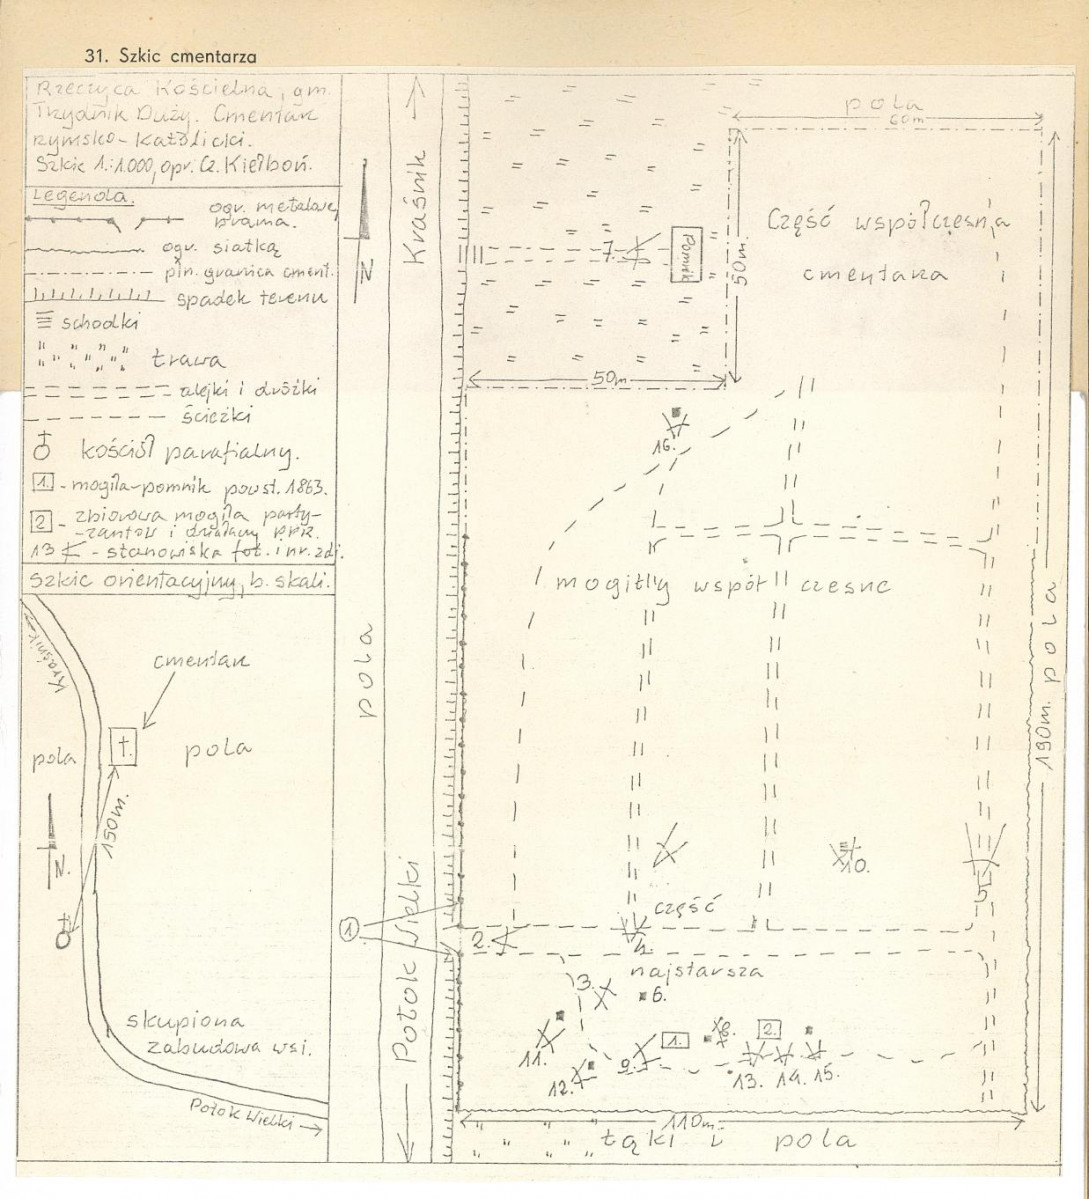 31. Szkic cmentarza
Rzeczyca Kościelna, gm.
Trzydnik Duży. Cmentarz
rzymsko-katolicki.
Szkic 1:1.000, opr. Cz. Kiełboń.
Legenda.
ogr. metalowe,
brama.
ogr. siatką
płn. granica cment.
spadek terenu
schodki
trawa
alejki i dróżki
ścieżki
kościół parafialny.
1. - mogiła-pomnik powst. 1863.
2 - zbiorowa mogiła party-
-zantów i działaczy PPR.
13 - stanowiska fot. i nr. zdj.
Szkic orientacyjny, b. skali.
Kraśnik
cmentarz
pola
pola
150m.
N.
skupiona
zabudowa wsi.
Potok Wielki
N
pola
Kraśnik
Potok Wielki
1
pola
60m
50m.
50m
Część współczesna
cmentarza
7.
Pomnik
16.
mogiły współczesne
190m.
pola
10.
5
część
2.
4.
najstarsza
3.
6.
8.
1.
2.
11.
12.
9.
13. 14. 15.
110m.
łąki i pola